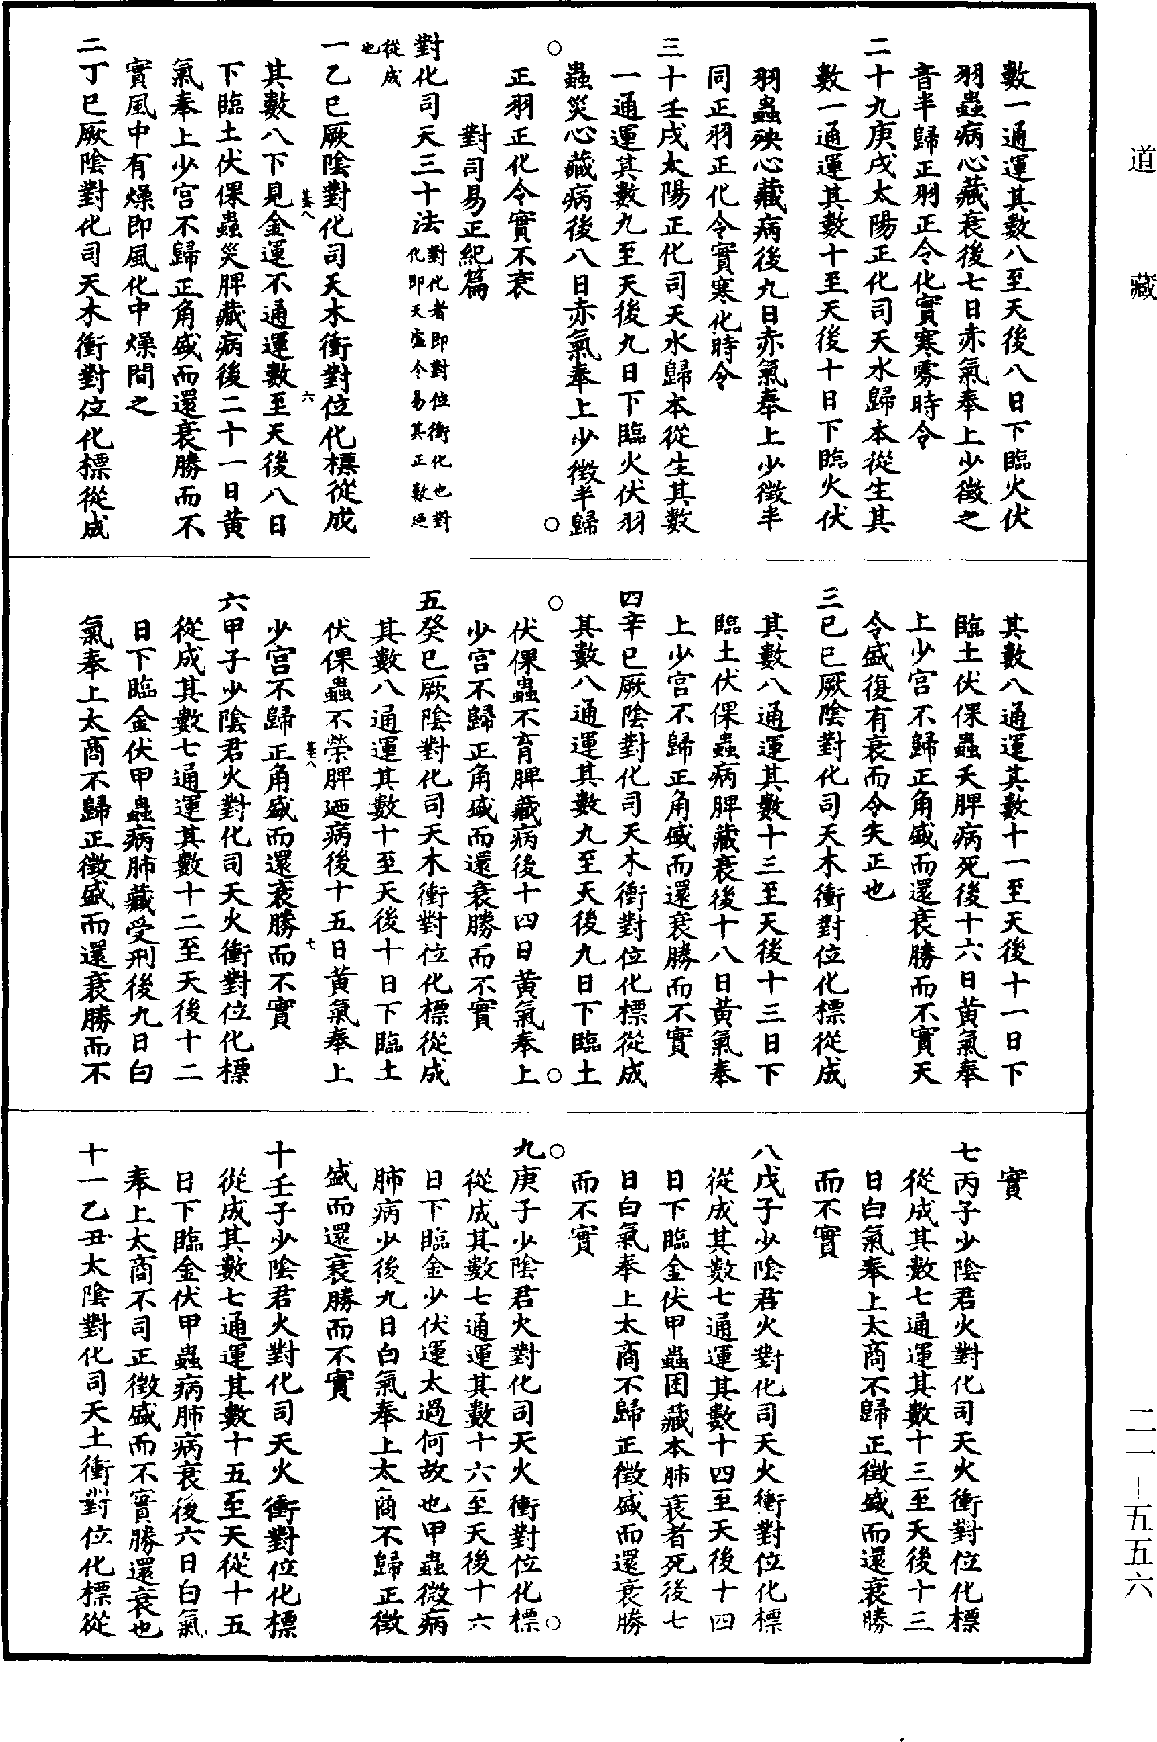 道藏
數一通運其數八至天後八日下臨火伏
羽蟲病心藏衰後七日赤氣奉上少徵之
音半歸正羽正令化實寒雰時令
二十九庚戌太陽正化司天水歸本從生其
數一通運其數十至天後十日下臨火伏
羽蟲殃心藏病後九日赤氣奉上少徵半
同正羽正化令實寒化時令
三十壬戌太陽正化司天水歸本從生其數
一通運其數九至天後九日下臨火伏羽
蟲災心藏病後八日赤氣奉上少徵半歸
正羽正化令實不衰
對司易正紀篇
對化司天三十法對化者即對位衝化也對
化即天虛令易其正數迺
從成
也
一乙巳厥陰對化司天木衝對位化標從成
其數八下見金運不通運數至天後八日
下臨土伏倮蟲災脾藏病後二十一日黃
氣奉上少宮不歸正角盛而還衰勝而不
實風中有燥即風化中燥間之
二丁巳厥陰對化司天木衝對位化標從成
其數八通運其數十一至天後十一日下
臨土伏倮蟲夭脾病死後十六日黃氣奉
上少宮不歸正角盛而還衰勝而不實天
令盛復有衰而令失正也
三己巳厥陰對化司天木衝對位化標從成
其數八通運其數十三至天後十三日下
臨土伏倮蟲病脾藏衰後十八日黃氣奉
上少宮不歸正角盛而還衰勝而不實
四辛巳厥陰對化司天木衝對位化標從成
其數八通運其數九至天後九日下臨土
伏倮蟲不育脾藏病後十四日黃氣奉上
少宮不歸正角盛而還衰勝而不實
五癸巳厥陰對化司天木衝對位化標從成
其數八通運其數十至天後十日下臨土
伏倮蟲不榮脾迺病後十五日黃氣奉上
少宮不歸正角盛而還衰勝而不實
六甲子少陰君火對化司天火衝對位化標
從成其數七通運其數十二至天後十二
日下臨金伏甲蟲病肺藏受刑後九日白
氣奉上太商不歸正徵盛而還衰勝而不
實
七丙子少陰君火對化司天火衝對位化標
從成其數七通運其數十三至天後十三
日白氣奉上太商不歸正徵盛而還衰勝
而不實
八戊子少陰君火對化司天火衝對位化標
從成其數七通運其數十四至天後十四
日下臨金伏甲蟲困藏本肺衰者死後七
日白氣奉上太商不歸正徵盛而還衰勝
而不實
九庚子少陰君火對化司天火衝對位化標
從成其數七通運其數十六至天後十六
日下臨金少伏運太過何故也甲蟲微病
肺病少後九日白氣奉上太商不歸正徵
盛而還衰勝而不實
十壬子少陰君火對化司天火衝對位化標
從成其數七通運其數十五至天從十五
日下臨金伏甲蟲病肺病衰後六日白氣
奉上太商不司正徵盛而不實勝還衰也
十一乙丑太陰對化司天土衝對位化標從
二一-五五六